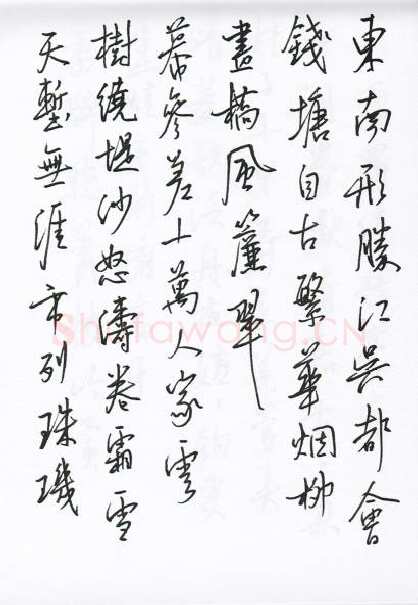 東南形勝江吳都會
錢塘自古繁華烟柳
畫橋風簾翠
幕參差十萬人家雲
樹繞堤沙怒濤卷霜雪
天塹無涯市列珠璣
Shufawang.CN